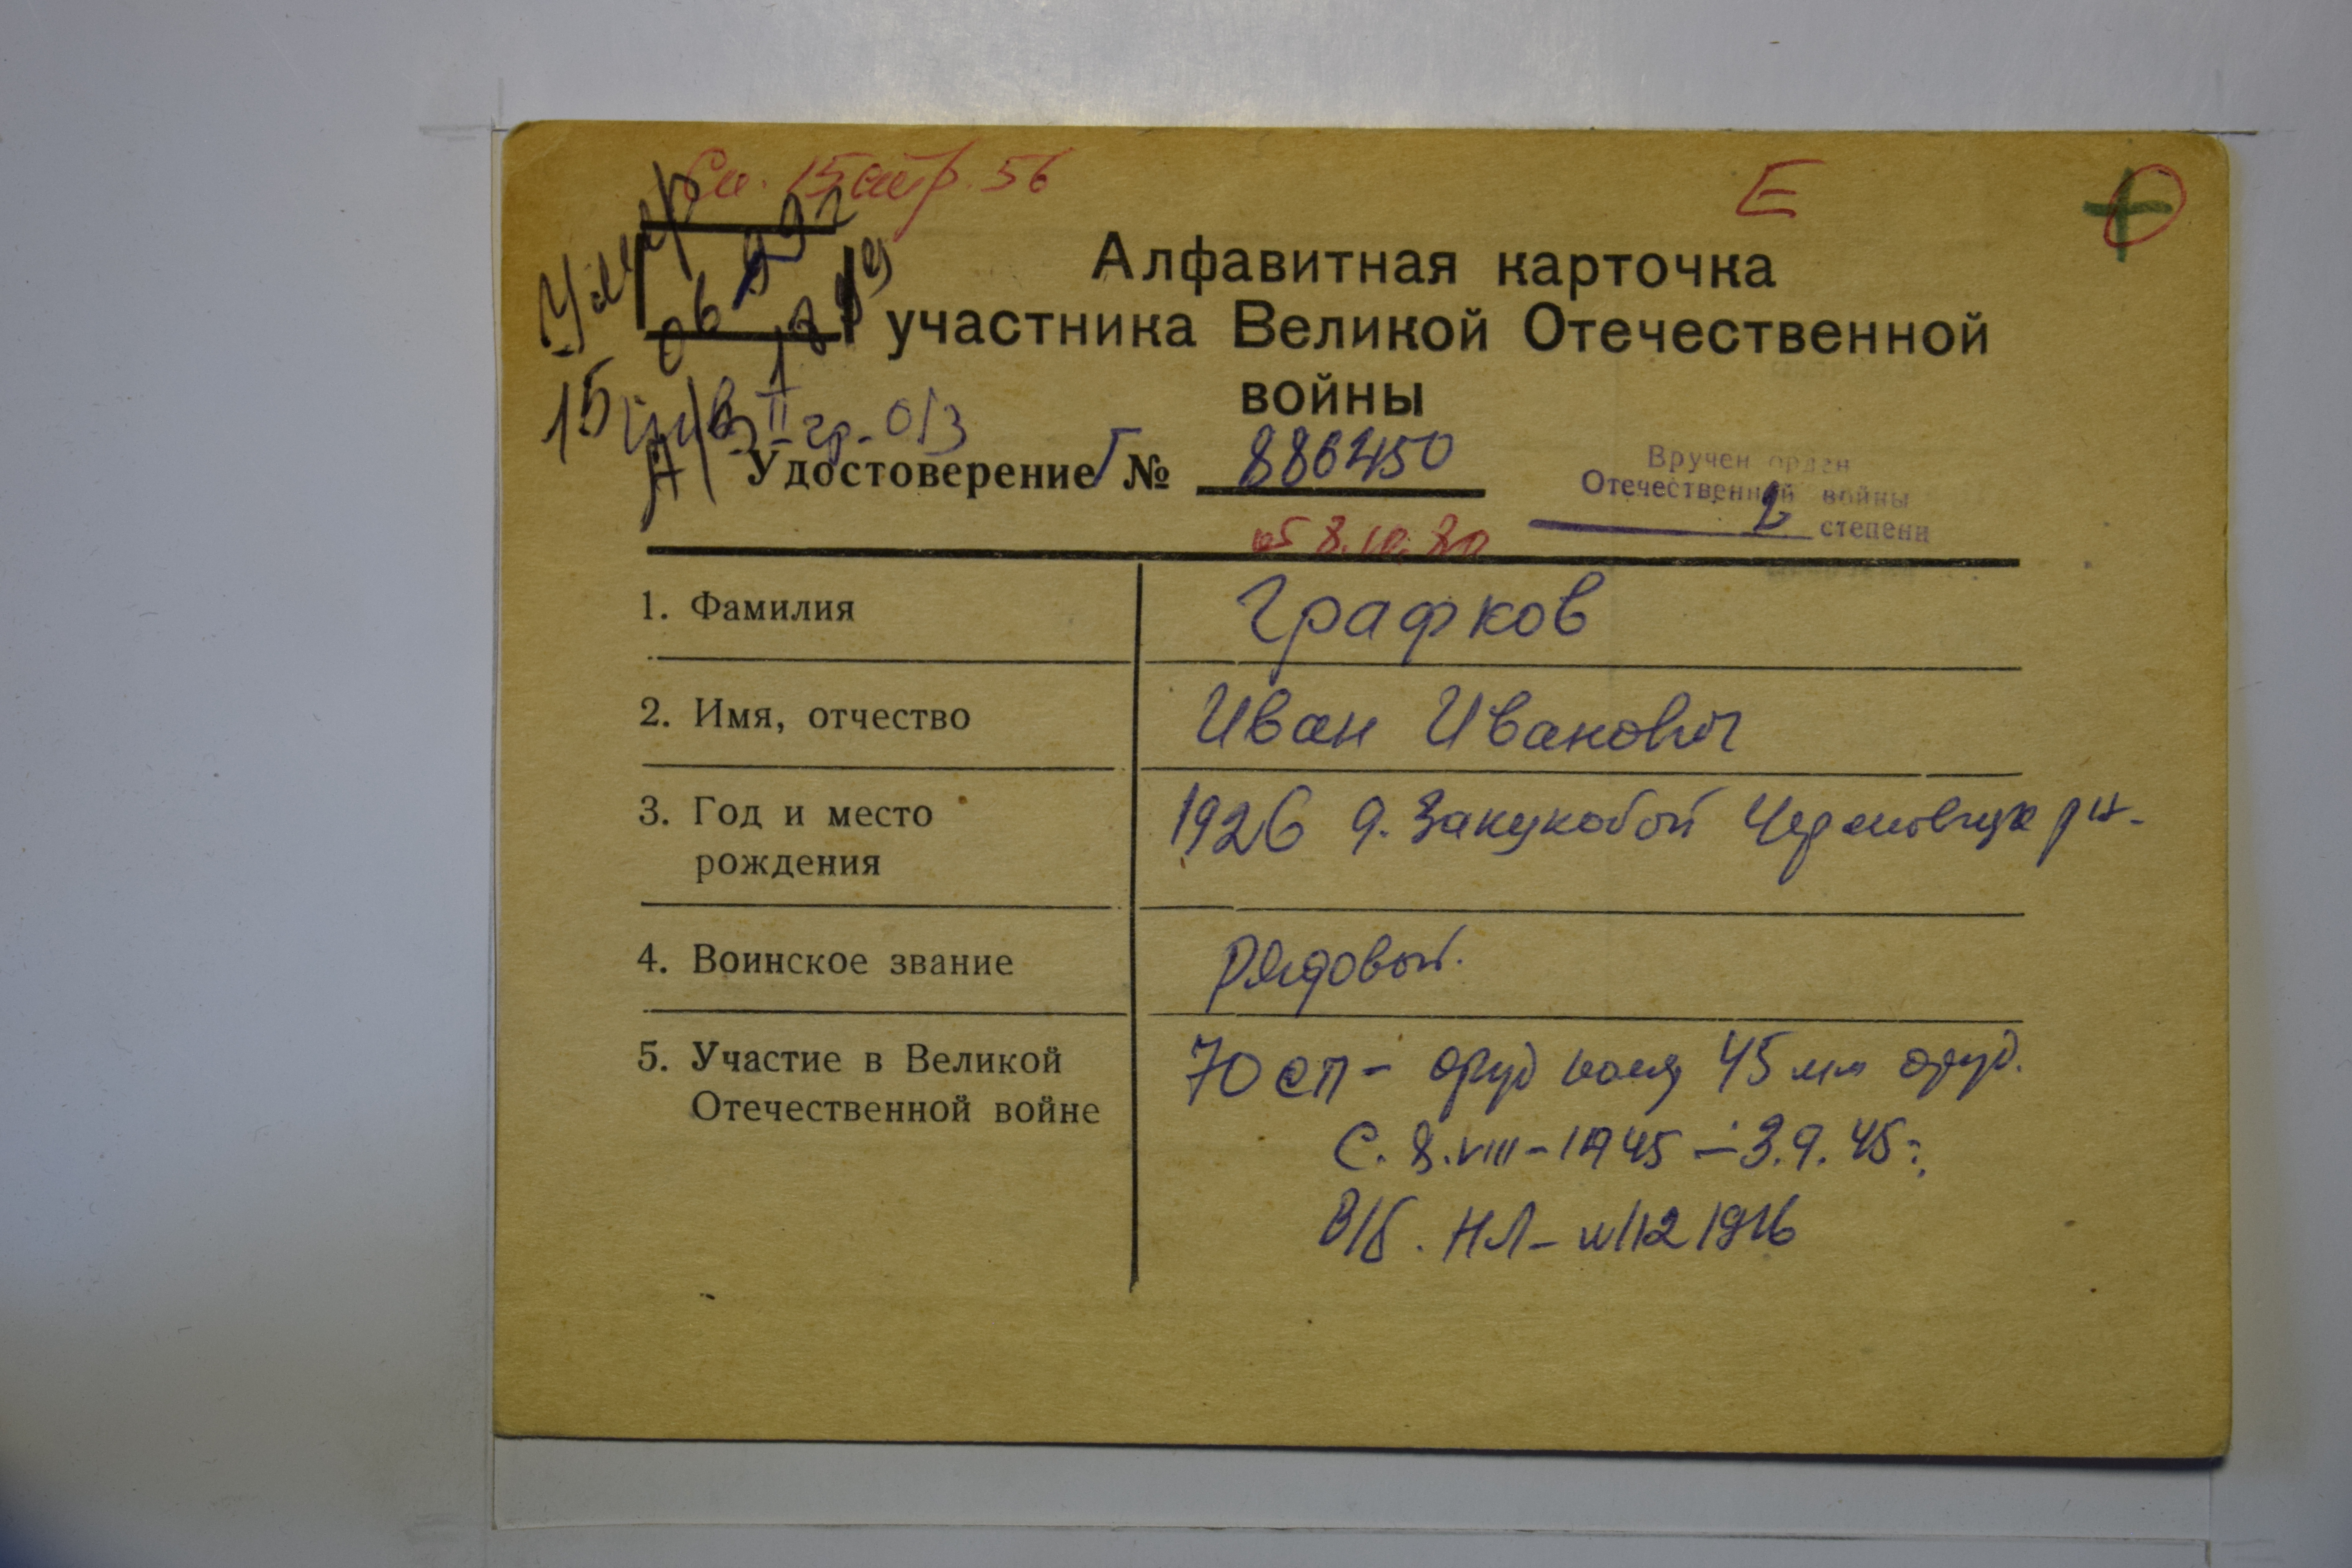 Сп. 15 стр. 56
Е
Умер
15
06 99 г
Инв II гр. О/З
Алфавитная карточка
участника Великой Отечественной
войны
Удостоверение Г № 886450
от 8.10.80
Вручен орден
Отечественной войны
2 степени
1. Фамилия
Графков
2. Имя, отчество
Иван Иванович
3. Год и место
рождения
1926 д.
4. Воинское звание
Рядовой.
5. Участие в Великой
Отечественной войне
70 сп - 45 мм оруд.
С. 8.VIII-1945 - 3.9.45г.
В/б. НЛ-